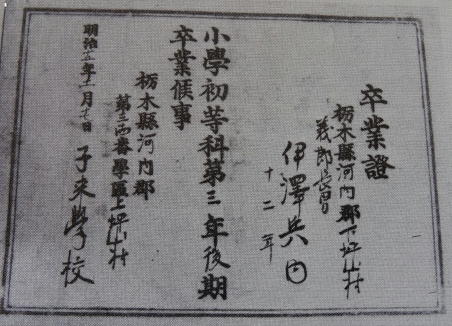 卒業證
栃木縣河内郡下坪山村
義郎長男
伊澤兵内
十二年
小學初等科第三年後期
卒業候事
栃木縣河内郡
學區上坪山村
子来學校
明治十五年十一月七日